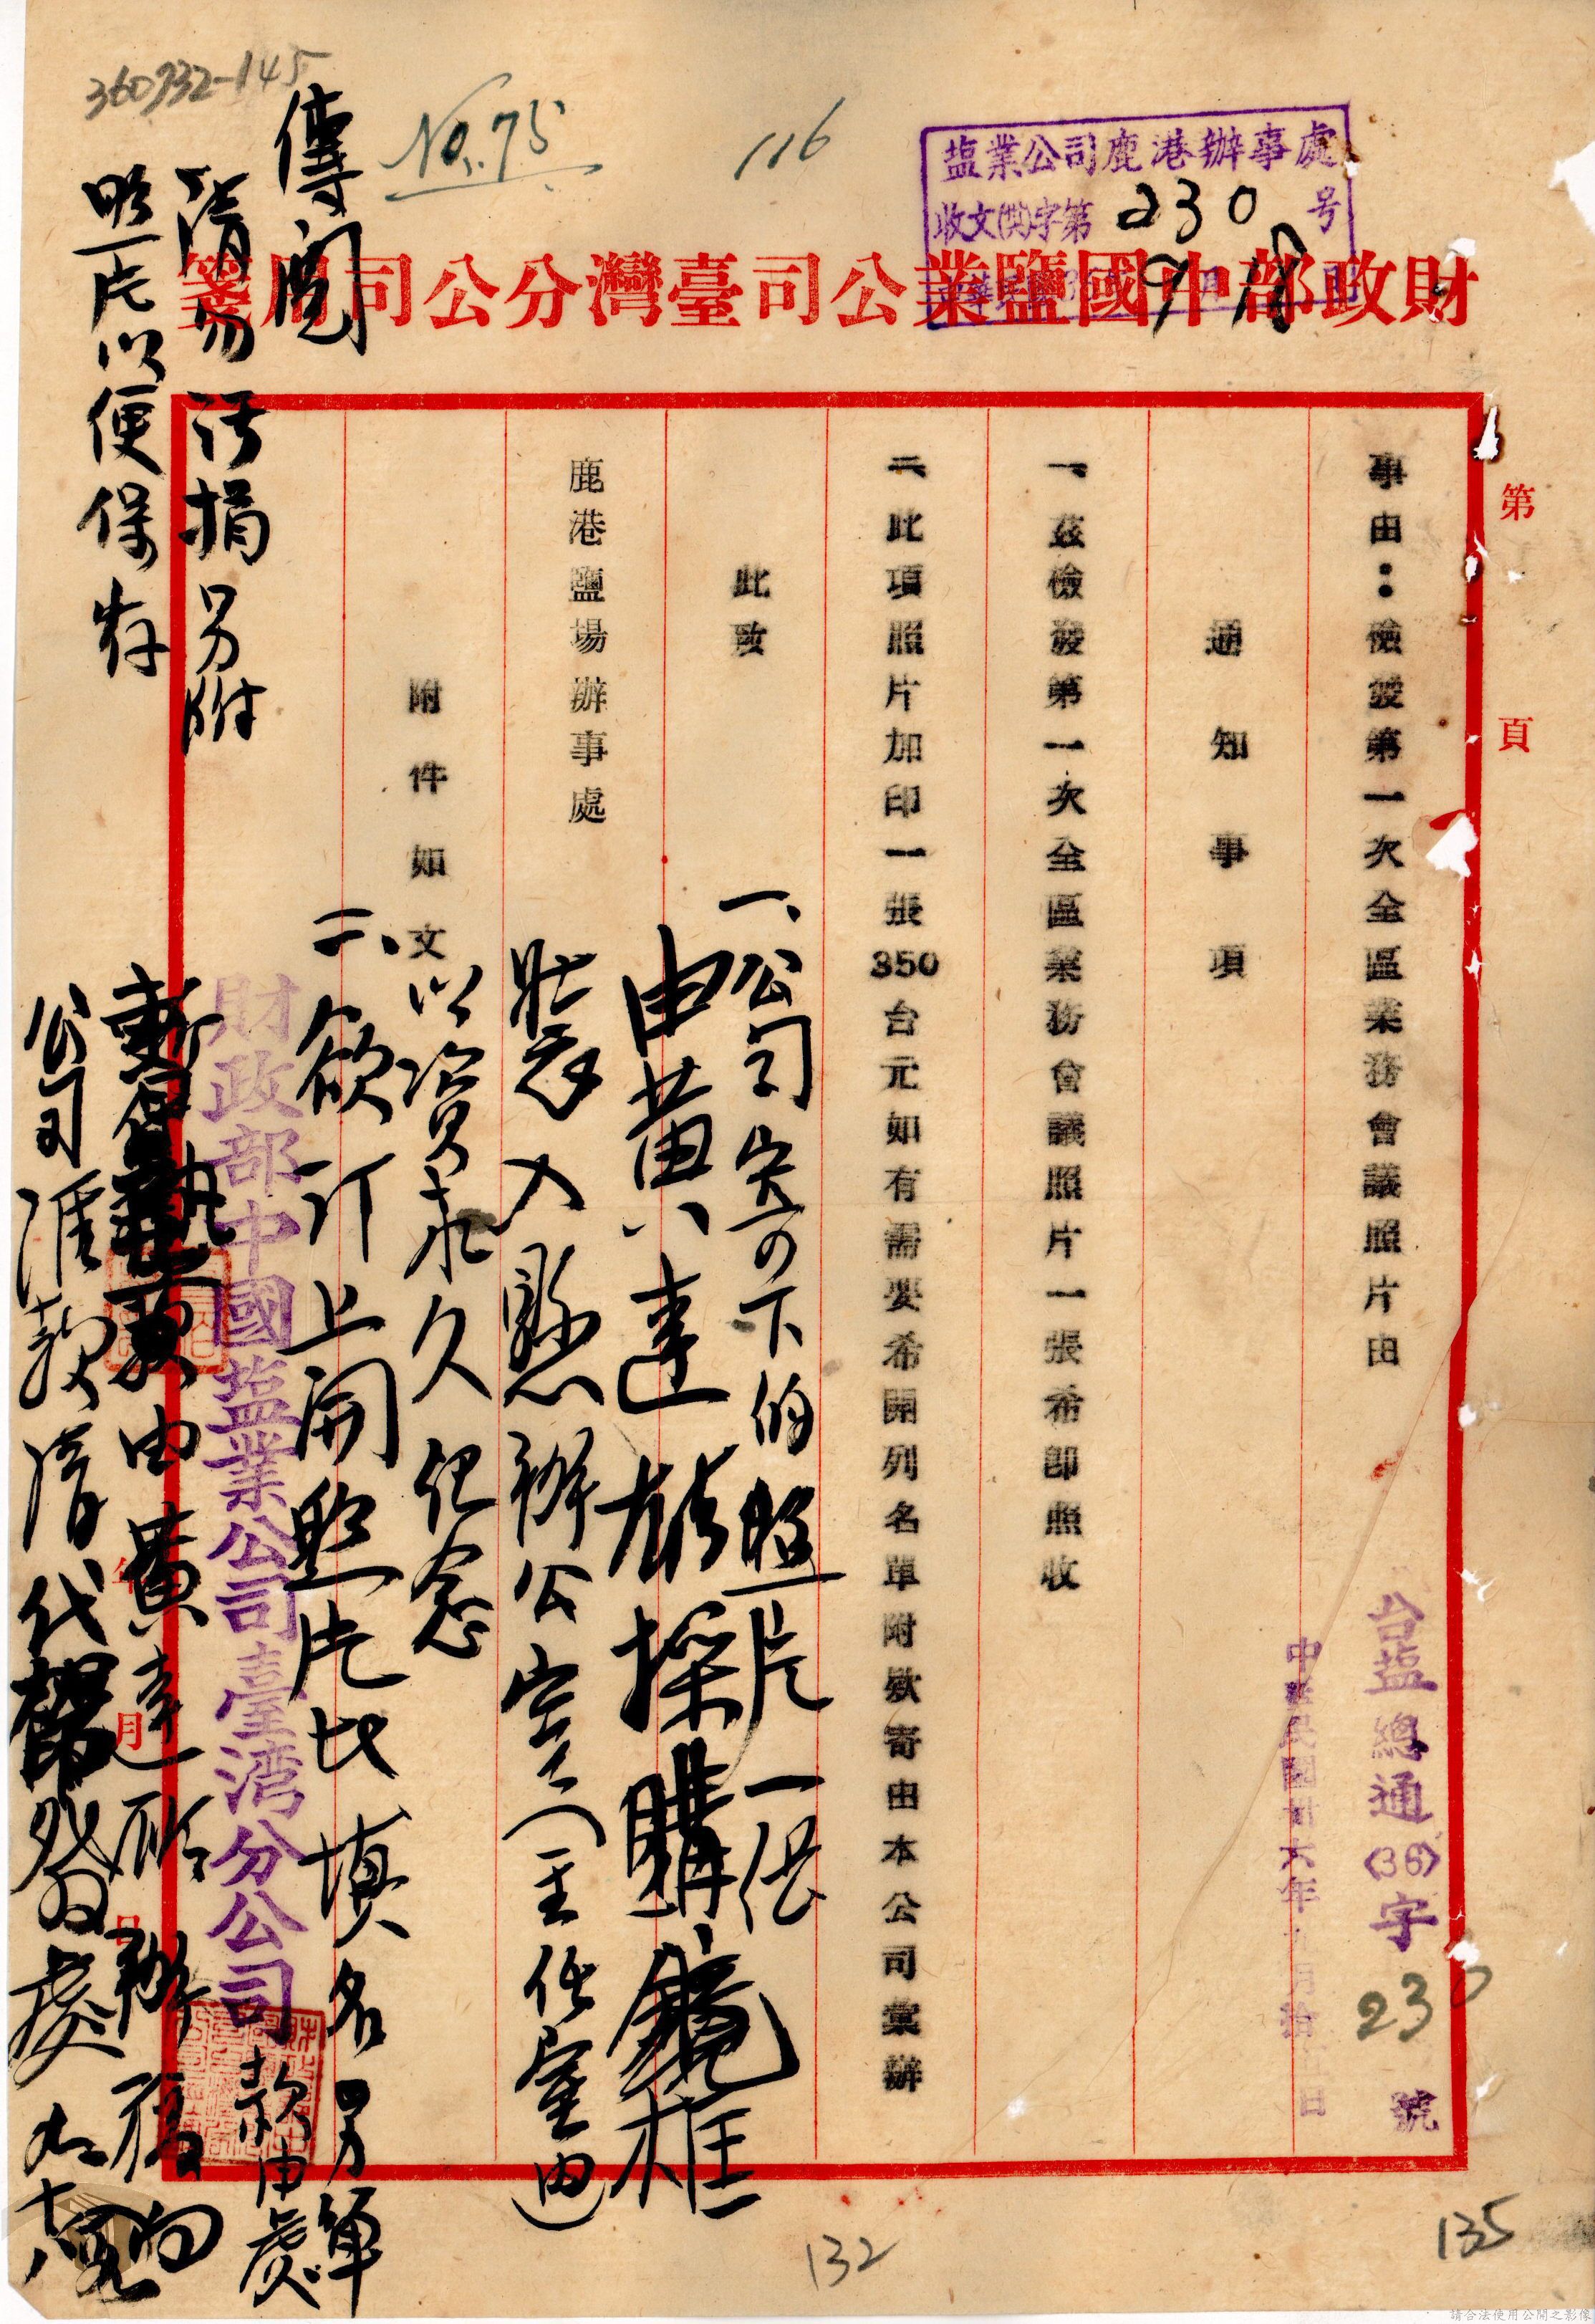 360932-145
No.75
116
塩業公司鹿港辦事處
收文(卅六)字第230号
財政部中國鹽業公司臺灣分公司用箋
第 頁
事由：檢發第一次全區業務會議照片由
台塩總通(36)字230號
中華民國卅六年 月拾 日
通知事項
一、茲檢發第一次全區業務會議照片一張希即照收
二、此項照片加印一張350台元如有需要希開列名單附欵寄由本公司彙辦
此致
鹿港鹽場辦事處
附件如文
財政部中國塩業公司臺湾分公司
年 月 日
一、公司寄下的照片一供
由黃達 採購鏡框
裝入懸辦公室(主任室內)
以資永久紀念
二、欲訂上開照片比填名另單
款由處
暫 由黃達 辦理向
公司匯款清代
傳閱
請勿污損另附
照片以便保存
132
135
請合法使用公開之影像